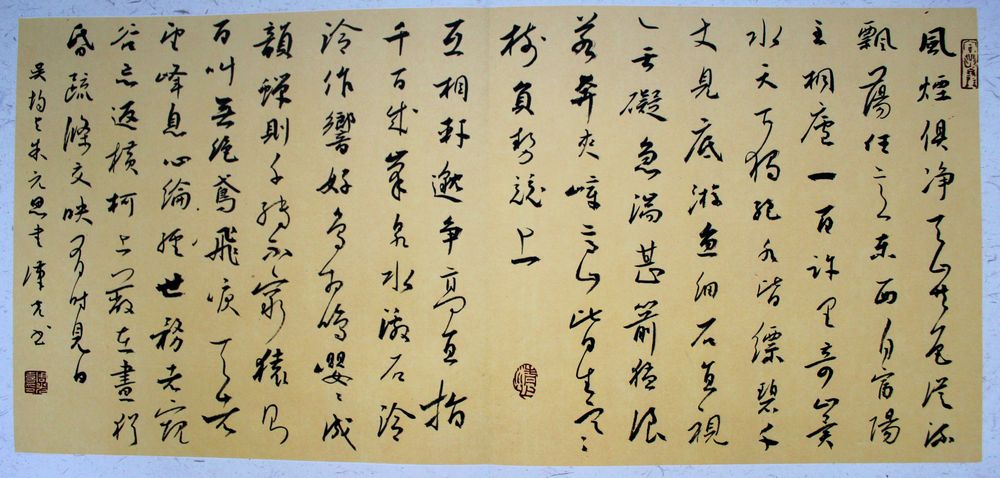 風煙俱净天山共色從流
飄蕩任意東西自富陽
至桐廬一百許里奇山異
水天下獨絕水皆縹碧千
丈見底游魚細石直視
無礙急湍甚箭猛浪
若奔夾嶂高山皆生寒
樹負勢競上
互相軒邈爭高直指
千百成峯泉水激石泠
泠作響好鳥相鳴嚶〻成
韻蟬則千轉不窮猿則
百叫無絕鳶飛唳天者
望峰息心綸經世務者窺
谷忘返橫柯上蔽在晝猶
昏疏條交映有時見日
吳均與朱元思書